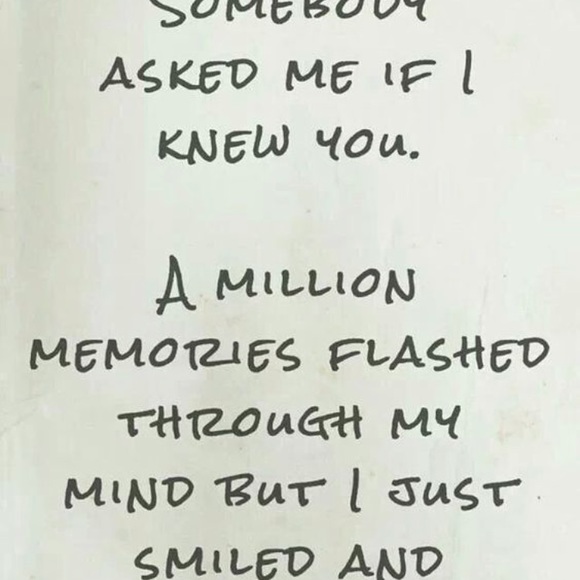 SOMEBODY
ASKED ME IF I
KNEW YOU.
A MILLION
MEMORIES FLASHED
THROUGH MY
MIND BUT I JUST
SMILED AND